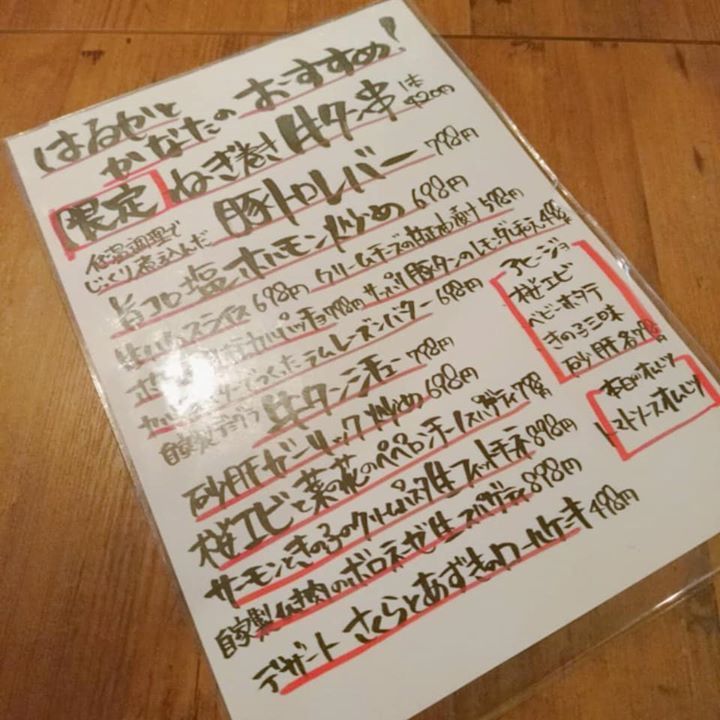 はるぜと
かなたの おすすめ!
限定 ねぎ巻き 牛タン串 1本 420円
低温調理で
じっくり煮込んだ 豚トロレバー 798円
旨コロ塩ホルモン炒め 698円
生ハムスライス 698円 クリームチーズの醤油漬け 598円
カルパッチョ 798円 サッパリ豚タンのレモンダレ和え 498円
カ でつくったラムレーズンバター 698円
自家製デミグラ 牛タンシチュー 798円
砂肝ガーリック炒め 698円
桜エビと菜の花のペペロンチーノスパゲティ 798円
サーモンときの子のクリームパスタ生フィットチネ 898円
自家製 肉のボロネーゼ生スパゲティ 898円
デザート さくらとあずきのロールケーキ 498円
アヒージョ
桜エビ
ベビーホタテ
きのこ三味
砂肝 各798円
本日のオムレツ
トマトソースオムレツ